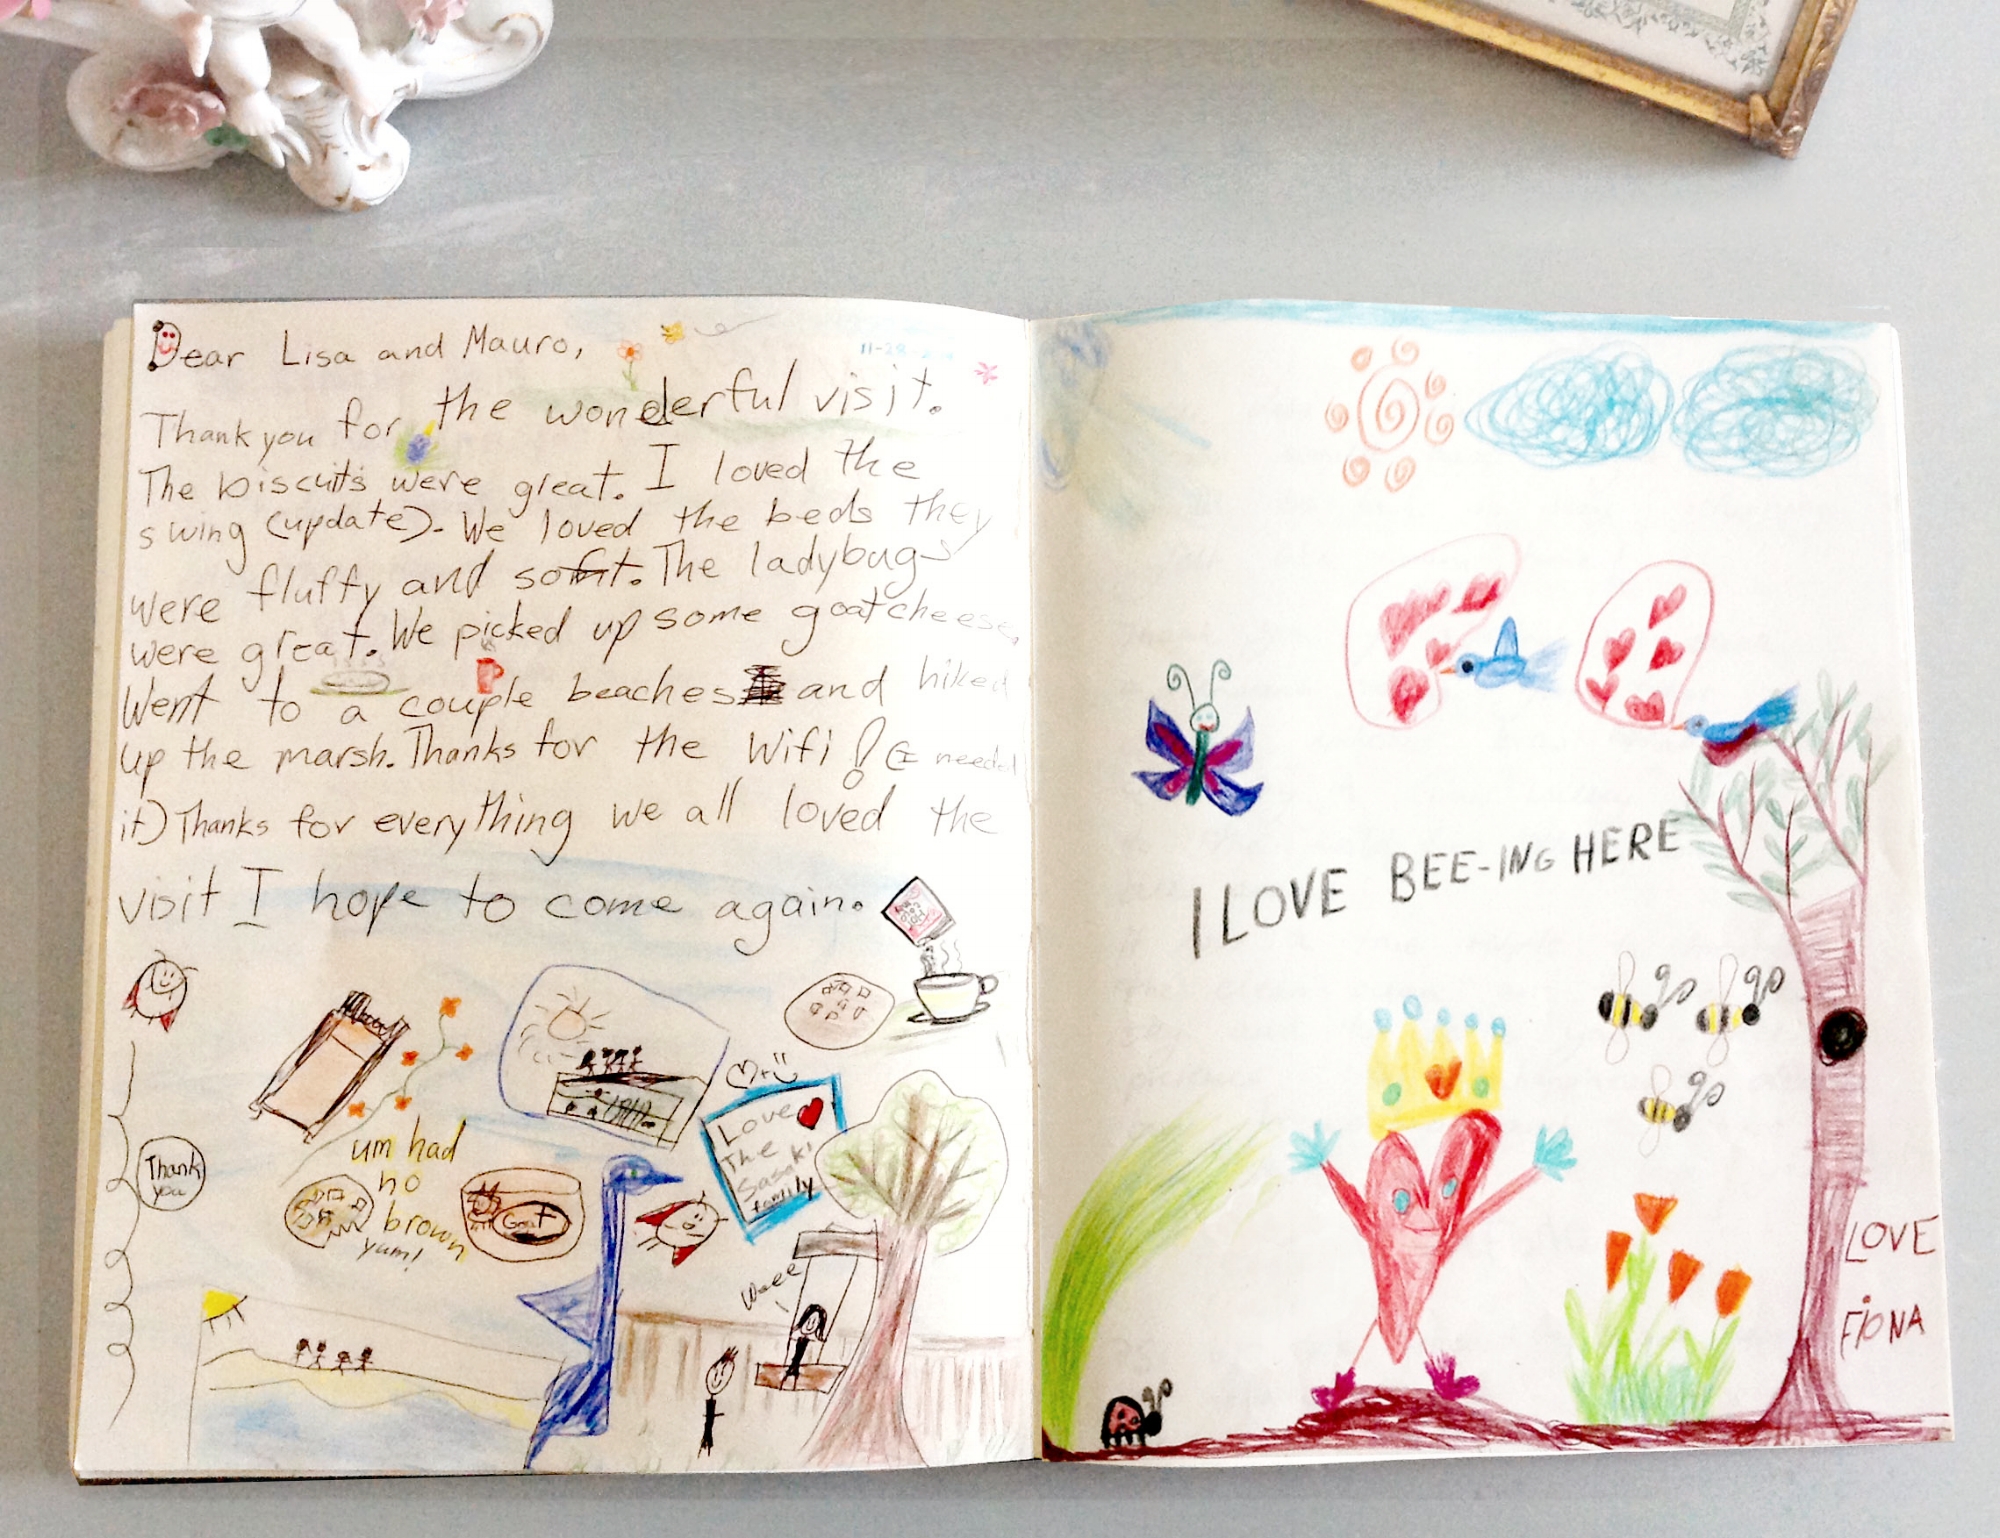 Dear Lisa and Mauro,
Thank you for the wonderful visit.
The biscuits were great. I loved the
swing (update). We loved the beds they
were fluffy and soft. The ladybugs
were great. We picked up some goat cheese.
Went to a couple beaches and hiked
up the marsh. Thanks for the Wifi! (I needed
it) Thanks for everything we all loved the
visit I hope to come again.
Thank
you
um had
no
brown
yum!
Goat
Love
The
Sasaki
family
Weee
I LOVE BEE-ING HERE
LOVE
FiONA